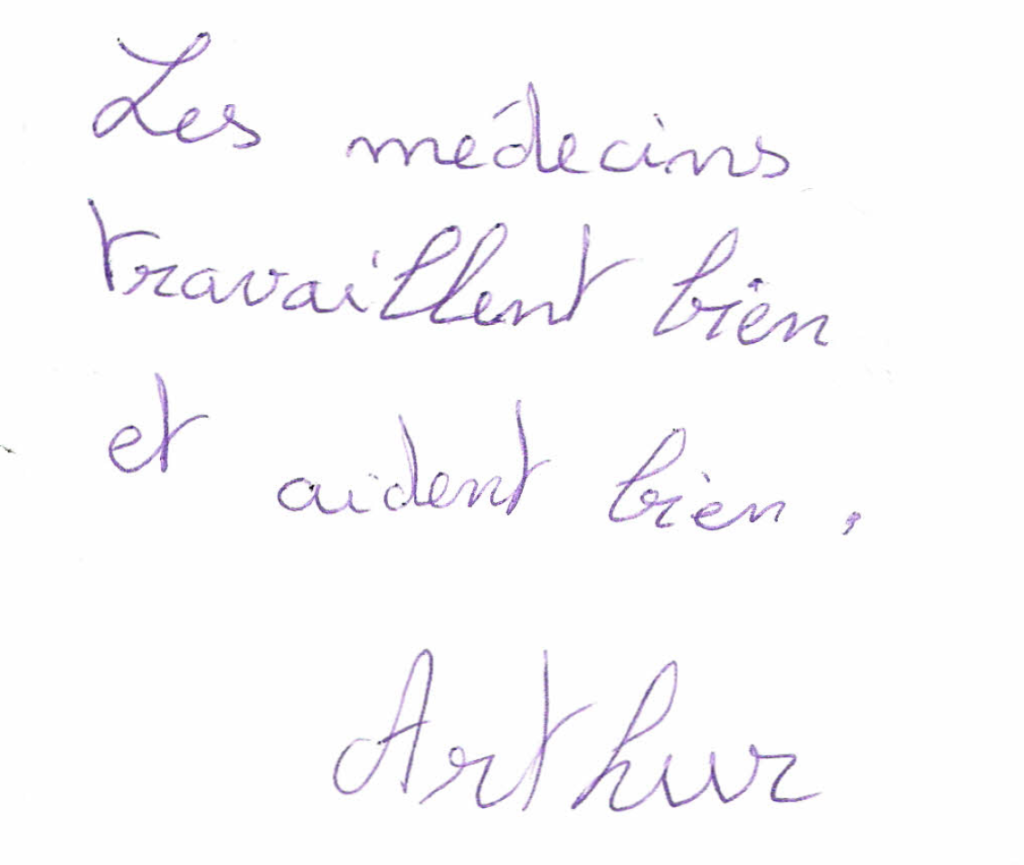 Les médecins
travaillent bien
et aident bien.
Arthur